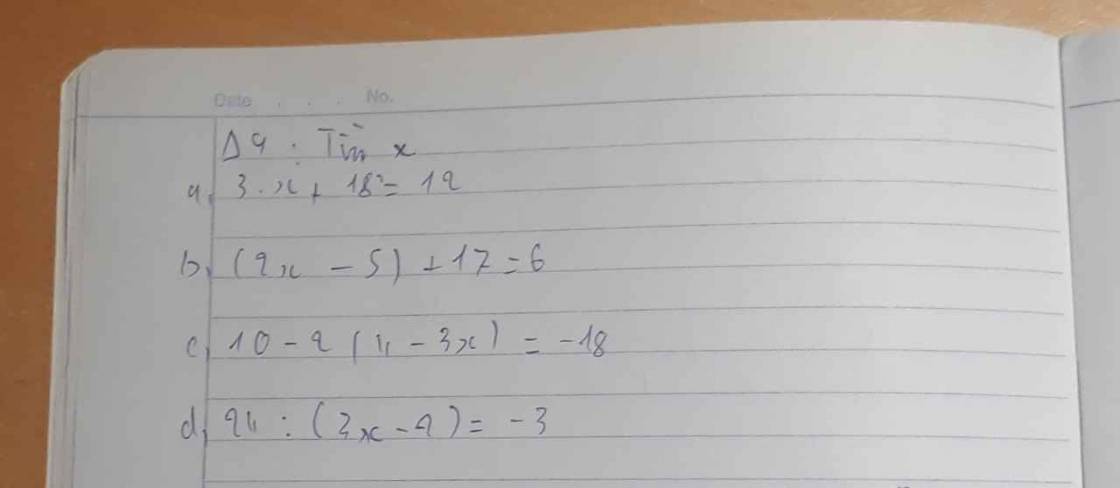 Date . . . No.
Δ2 : Tìm x
a, 3.x + 18 = 12
b, (2x - 5) + 17 = 6
c, 10 - 2 (4 - 3x) = -18
d, 24 : (3x - 2) = -3